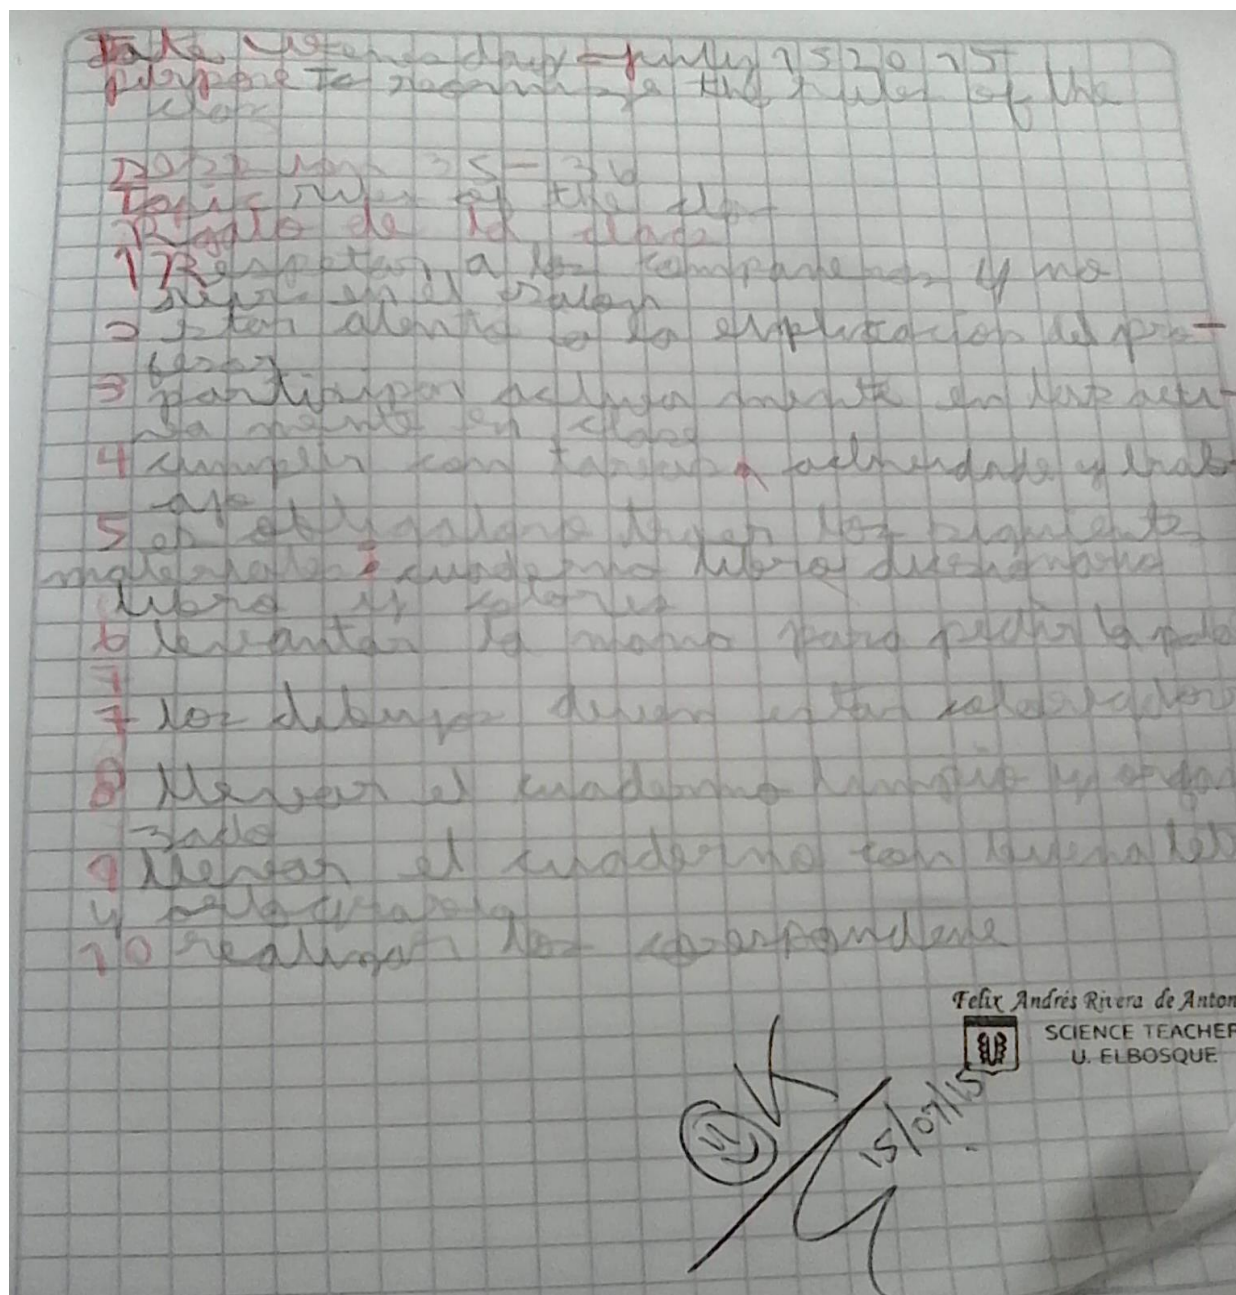 Date wensday - july 15 2015
purpose To recognize the rules of the
clas
35 - 36
Topic rules of the clas
Regla de la clase
1) Respetar a los compañeros y no
en el salon
2 star atento a la explicacion del pro-
fesor
3 partisipar activa mente en las acti-
va mente en clase
4 cumplir con tareas actividade y trab
ajo
5 es obligatorio los siguiente
materiales : cuaderno libro disionario
libro y colores
6 levantar la mano para pedir la pala
7
7 los dibujos deven estar coloreados
8 Llevar el cuaderno limpio y organ
zado
9 Llevar el cuaderno con buena let
y
10 realizar los
Felix Andrés Rivera de Anton
SCIENCE TEACHER
U. ELBOSQUE
OK
15/07/15